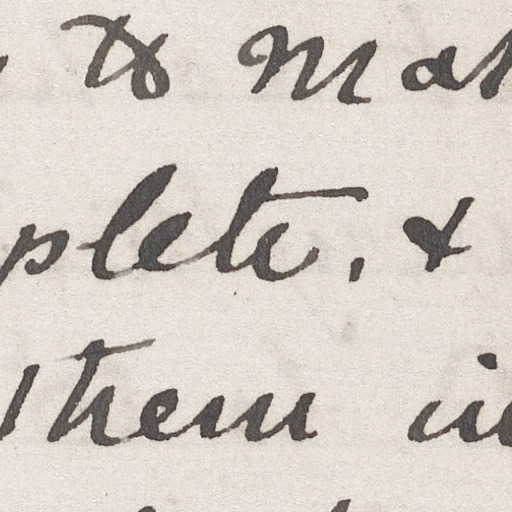 to Mak
plete, &
them in